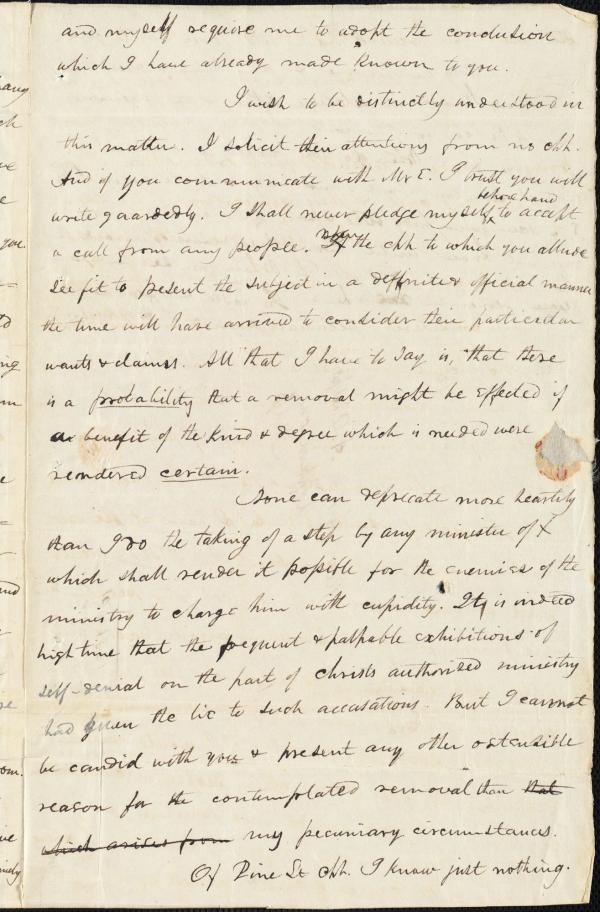 and myself require me to adopt the conclusion
which I have already made known to you.
I wish to be distinctly understood in
this matter. I solicit their attentions from no chh.
And if you communicate with Mr E. I trust you will
write guardedly. I shall never pledge myself beforehand to accept
a call from any people. When the chh to which you allude
see fit to present the subject in a definite & official manner
the time will have arrived to consider their particular
wants & claims. All that I have to say is, that there
is a probability that a removal might be effected if
a benefit of the kind & degree which is needed were
rendered certain.
None can deprecate more heartily
than I do the taking of a step by any minister of X
which shall render it possible for the enemies of the
ministry to charge him with cupidity. It is indeed
high time that the frequent & palpable exhibitions of
self-denial on the part of Christs authorized ministry
had given the lie to such accusations. But I cannot
be candid with you & present any other ostensible
reason for the contemplated removal than that
which arises from my pecuniary circumstances.
Of Pine St chh. I know just nothing.